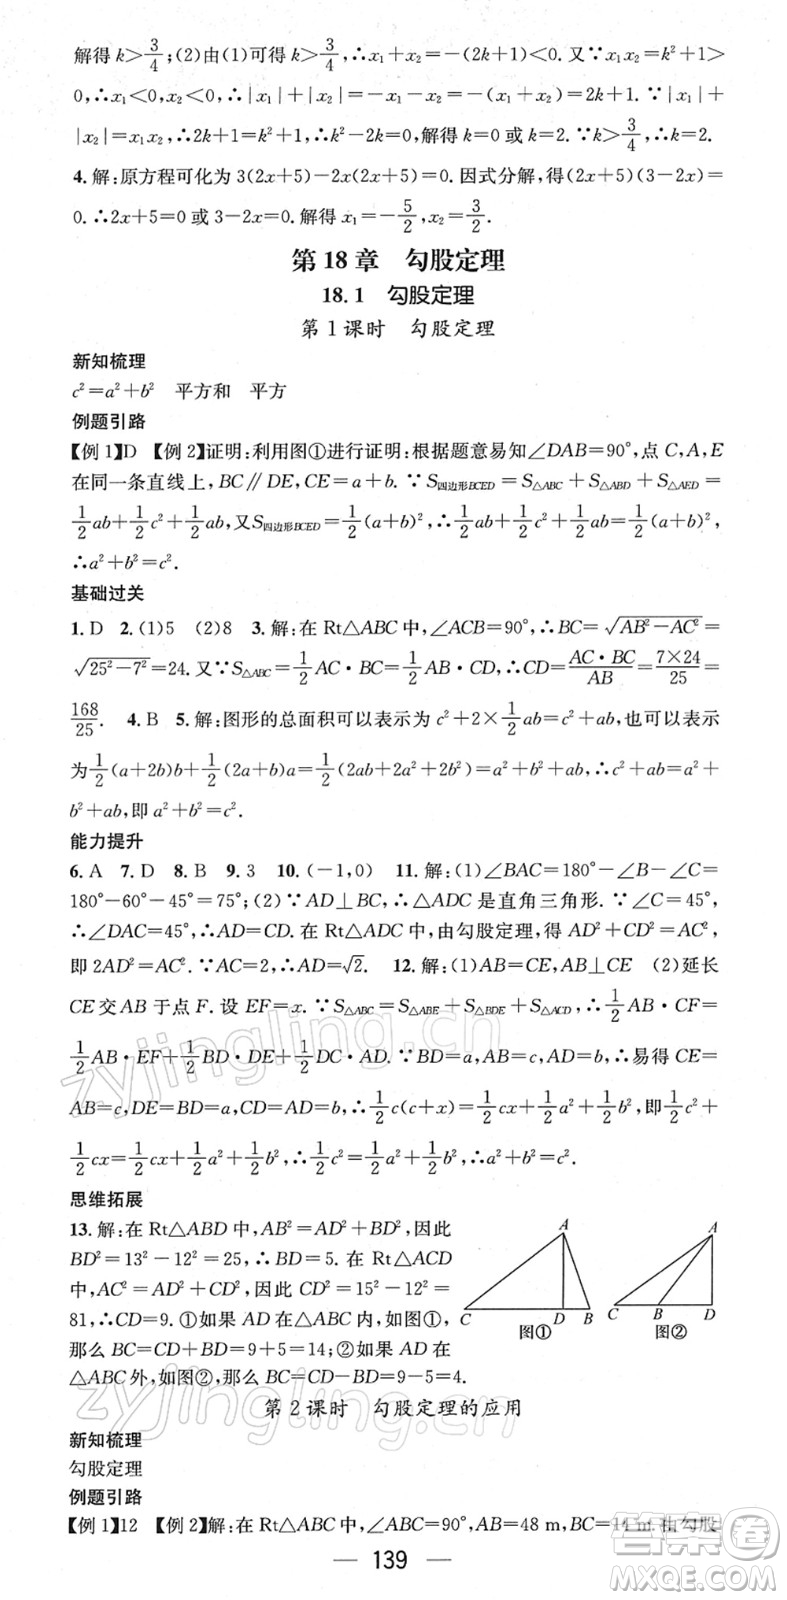 解得k>3/4;(2)由(1)可得k>3/4,∴x₁+x₂=-(2k+1)<0.又∵x₁x₂=k²+1>
0,∴x₁<0,x₂<0,∴|x₁|+|x₂|=-x₁-x₂=-(x₁+x₂)=2k+1.∵|x₁|+
|x₂|=x₁x₂,∴2k+1=k²+1,∴k²-2k=0,解得k=0或k=2.∵k>3/4,∴k=2.
4.解:原方程可化为3(2x+5)-2x(2x+5)=0.因式分解,得(2x+5)(3-2x)=
0.∴2x+5=0或3-2x=0.解得x₁=-5/2,x₂=3/2.
第18章 勾股定理
18.1 勾股定理
第1课时 勾股定理
新知梳理
c²=a²+b² 平方和 平方
例题引路
【例1】D 【例2】证明:利用图①进行证明:根据题意易知∠DAB=90°,点C,A,E
在同一条直线上,BC∥DE,CE=a+b.∵S四边形BCED=S△ABC+S△ABD+S△AED=
1/2ab+1/2c²+1/2ab,又S四边形BCED=1/2(a+b)²,∴1/2ab+1/2c²+1/2ab=1/2(a+b)²,
∴a²+b²=c².
基础过关
1.D 2.(1)5 (2)8 3.解:在Rt△ABC中,∠ACB=90°,∴BC=√(AB²-AC²)=
√(25²-7²)=24.又∵S△ABC=1/2AC·BC=1/2AB·CD,∴CD=AC·BC/AB=7×24/25=
168/25. 4.B 5.解:图形的总面积可以表示为c²+2×1/2ab=c²+ab,也可以表示
为1/2(a+2b)b+1/2(2a+b)a=1/2(2ab+2a²+2b²)=a²+b²+ab,∴c²+ab=a²+
b²+ab,即a²+b²=c².
能力提升
6.A 7.D 8.B 9.3 10.(-1,0) 11.解:(1)∠BAC=180°-∠B-∠C=
180°-60°-45°=75°;(2)∵AD⊥BC,∴△ADC是直角三角形.∵∠C=45°,
∴∠DAC=45°,∴AD=CD.在Rt△ADC中,由勾股定理,得AD²+CD²=AC²,
即2AD²=AC².∵AC=2,∴AD=√2. 12.解:(1)AB=CE,AB⊥CE (2)延长
CE交AB于点F.设EF=x.∵S△ABC=S△ABE+S△BDE+S△ACD,∴1/2AB·CF=
1/2AB·EF+1/2BD·DE+1/2DC·AD.∵BD=a,AC=b,AB=c,∴易得CE=
AB=c,DE=BD=a,CD=AD=b,∴1/2c(c+x)=1/2cx+1/2a²+1/2b²,即1/2c²+
1/2cx=1/2cx+1/2a²+1/2b²,∴1/2c²=1/2a²+1/2b²,∴a²+b²=c².
思维拓展
13.解:在Rt△ABD中,AB²=AD²+BD²,因此
BD²=13²-12²=25,∴BD=5.在Rt△ACD
中,AC²=AD²+CD²,因此CD²=15²-12²=
81,∴CD=9.①如果AD在△ABC内,如图①,
那么BC=CD+BD=9+5=14;②如果AD在
△ABC外,如图②,那么BC=CD-BD=9-5=4.
A
C D B
图①
A
C B D
图②
第2课时 勾股定理的应用
新知梳理
勾股定理
例题引路
【例1】12 【例2】解:在Rt△ABC中,∠ABC=90°,AB=48 m,BC=14 m.由勾股
— 139 —
zyjingling.cn
zyjingling.cn
答案圈
MXQE.COM